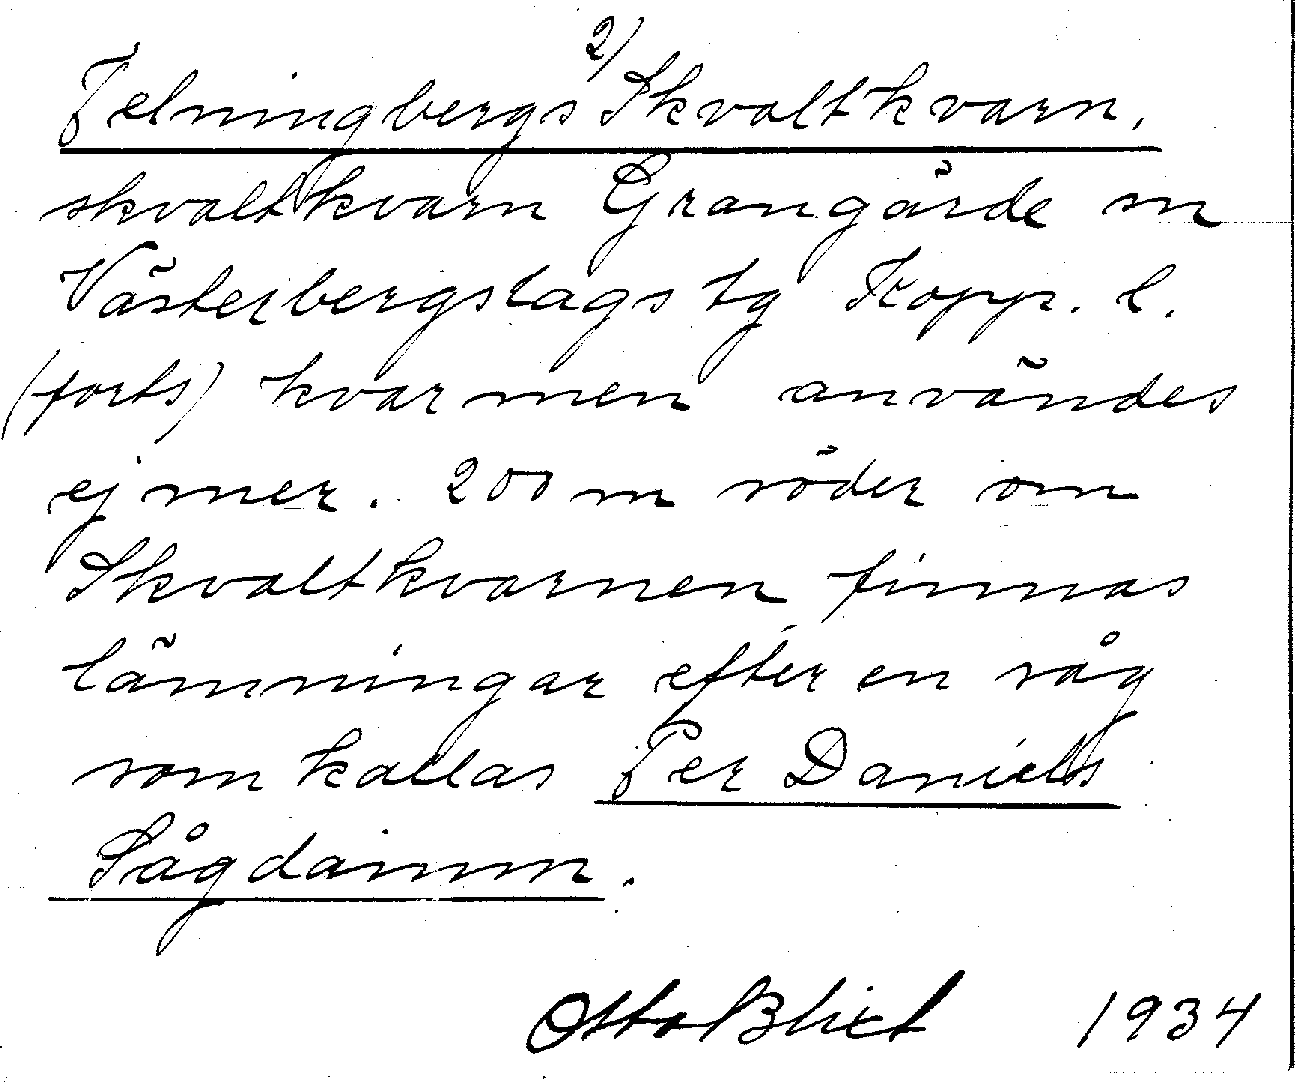 2/
Felningbergs Skvaltkvarn.
skvaltkvarn Grangärde m
Västerbergslags tg Kopp. l.
(forts) kvarnen användes
ej mer. 200 m söder om
Skvaltkvarnen finnas
lämningar efter en såg
som kallas Per Daniels
Sågdamm.
Otto Blixt 1934